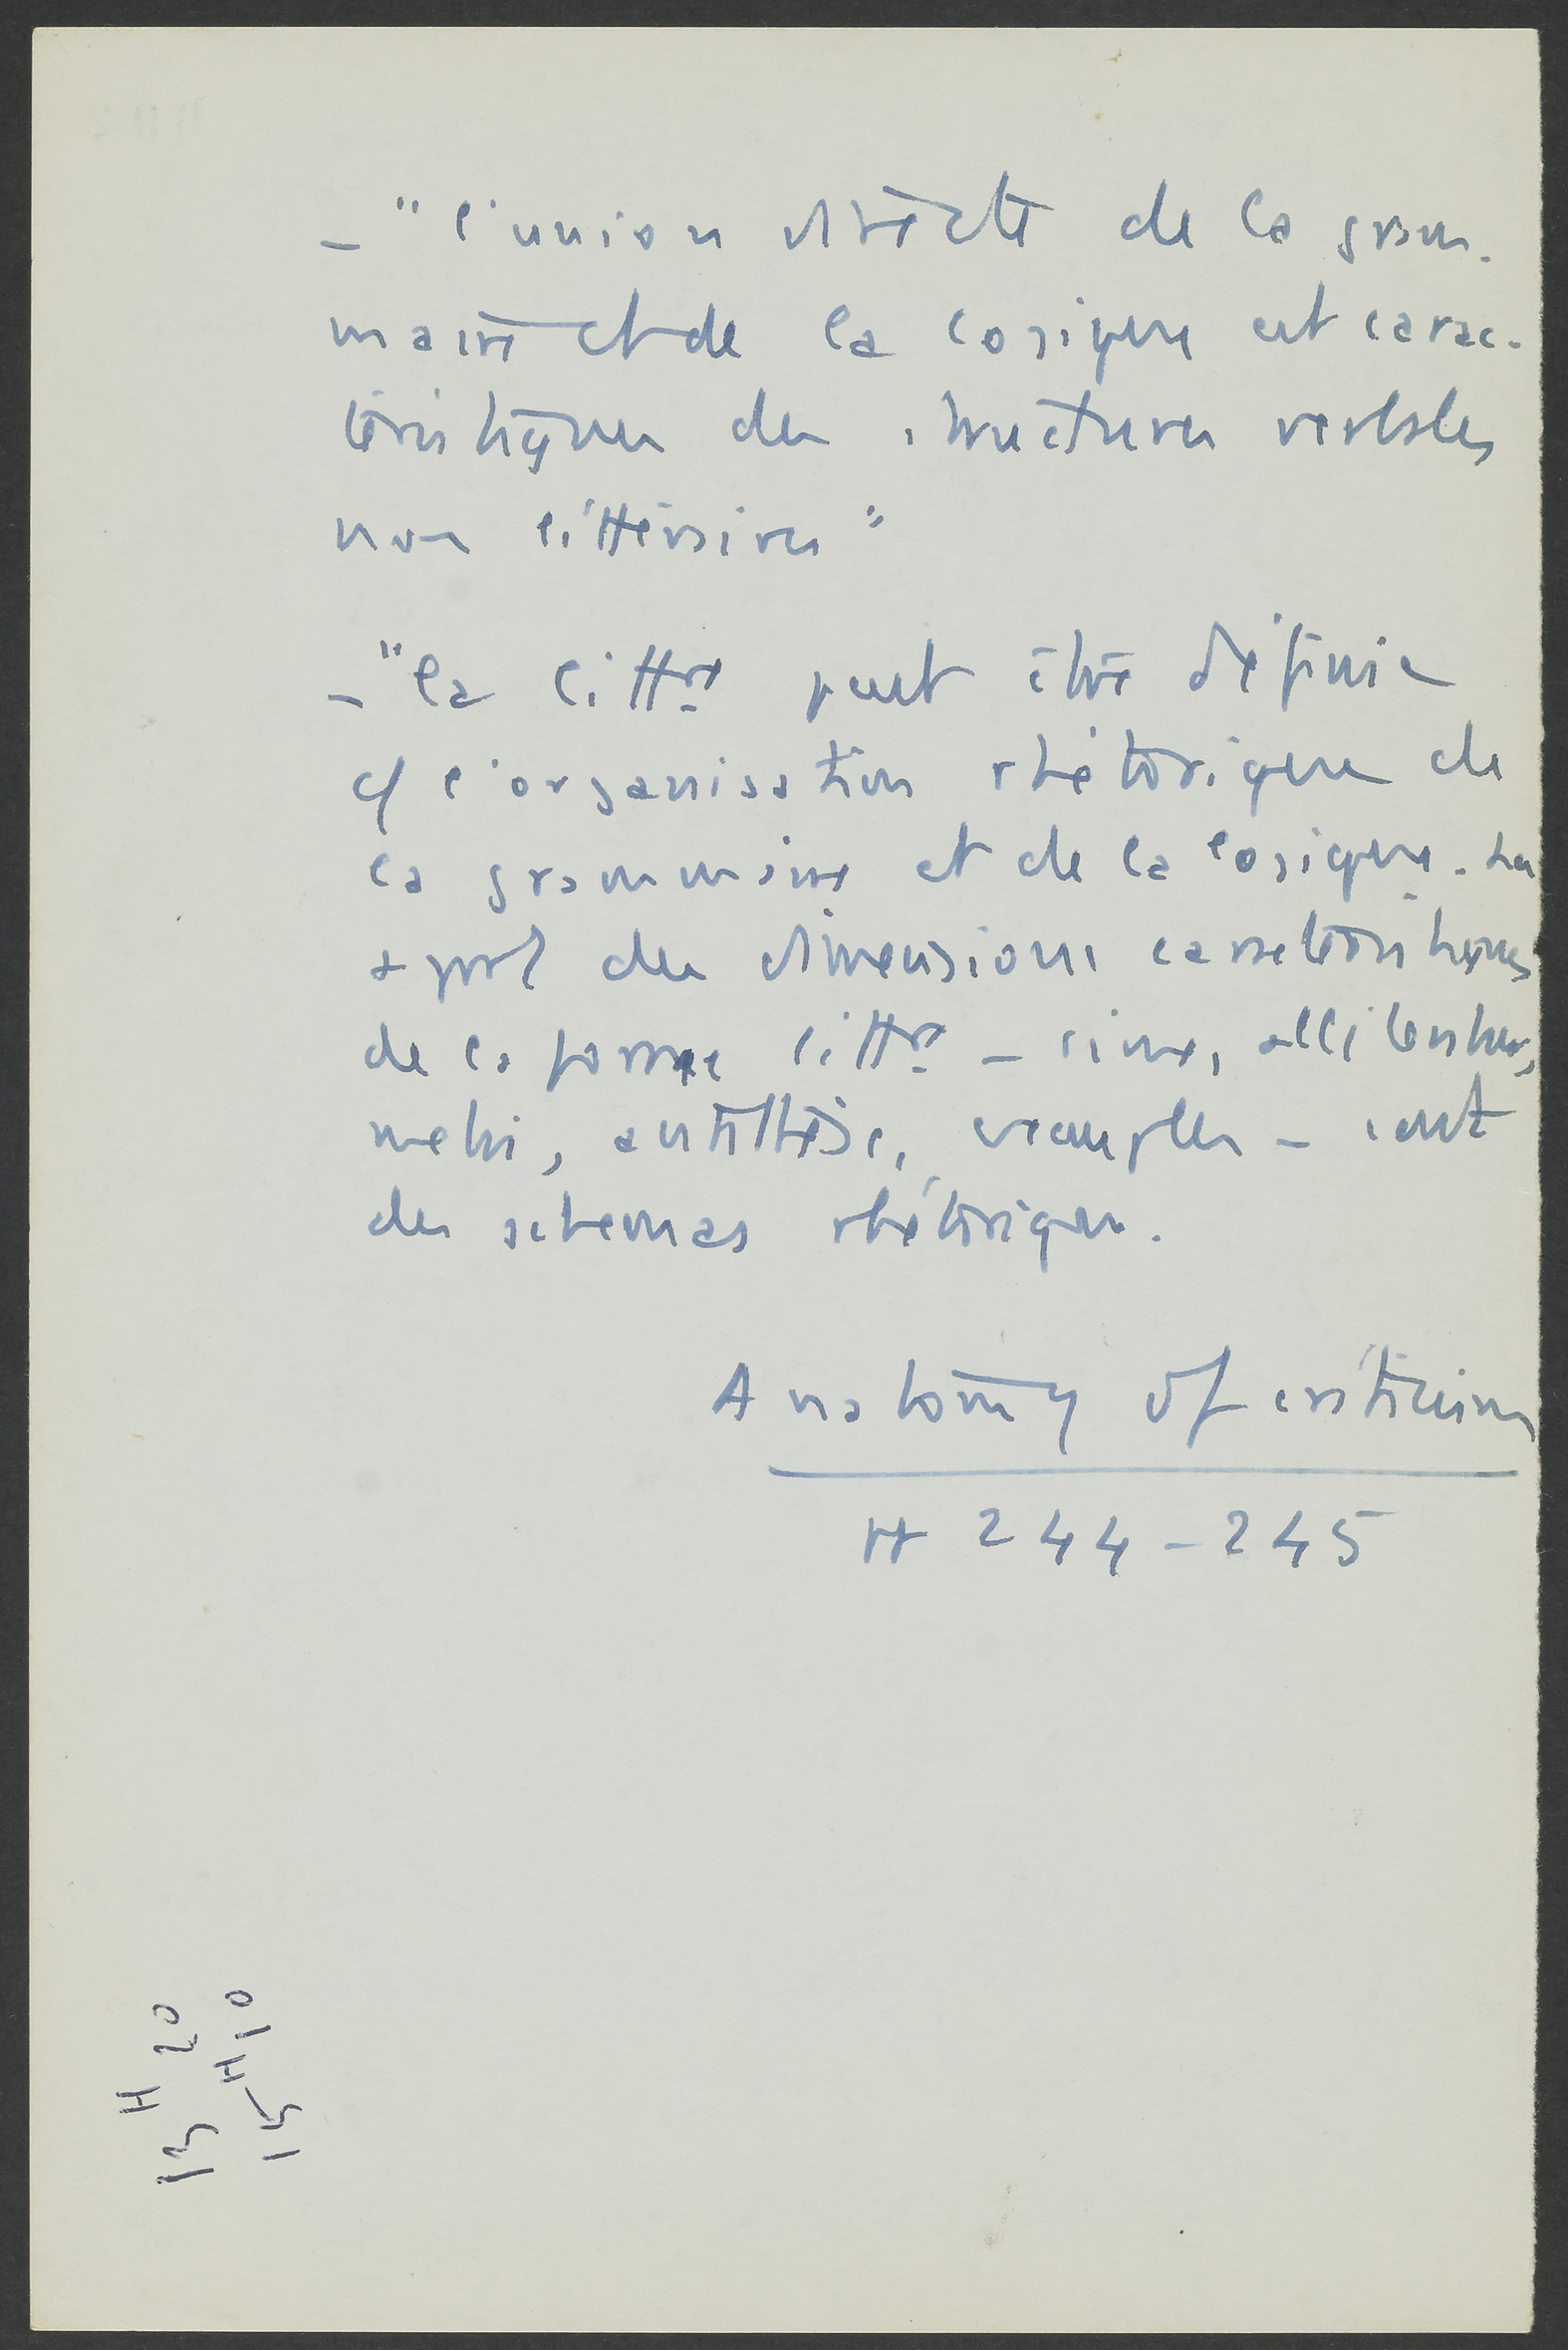 - "l'union directe de la gram-
maire et de la logique est carac-
téristique des structures verbales
non littéraires"
- "la littre peut être définie
c/ l'organisation rhétorique de
la grammaire et de la logique. La
+ part des dimensions caractéristiques
de la forme littre - rime, allitération,
metri, antithèse, exemples - sont
des schemas rhétoriques.
Anatomy of criticism
pp 244-245
13 H 20
15 H 10